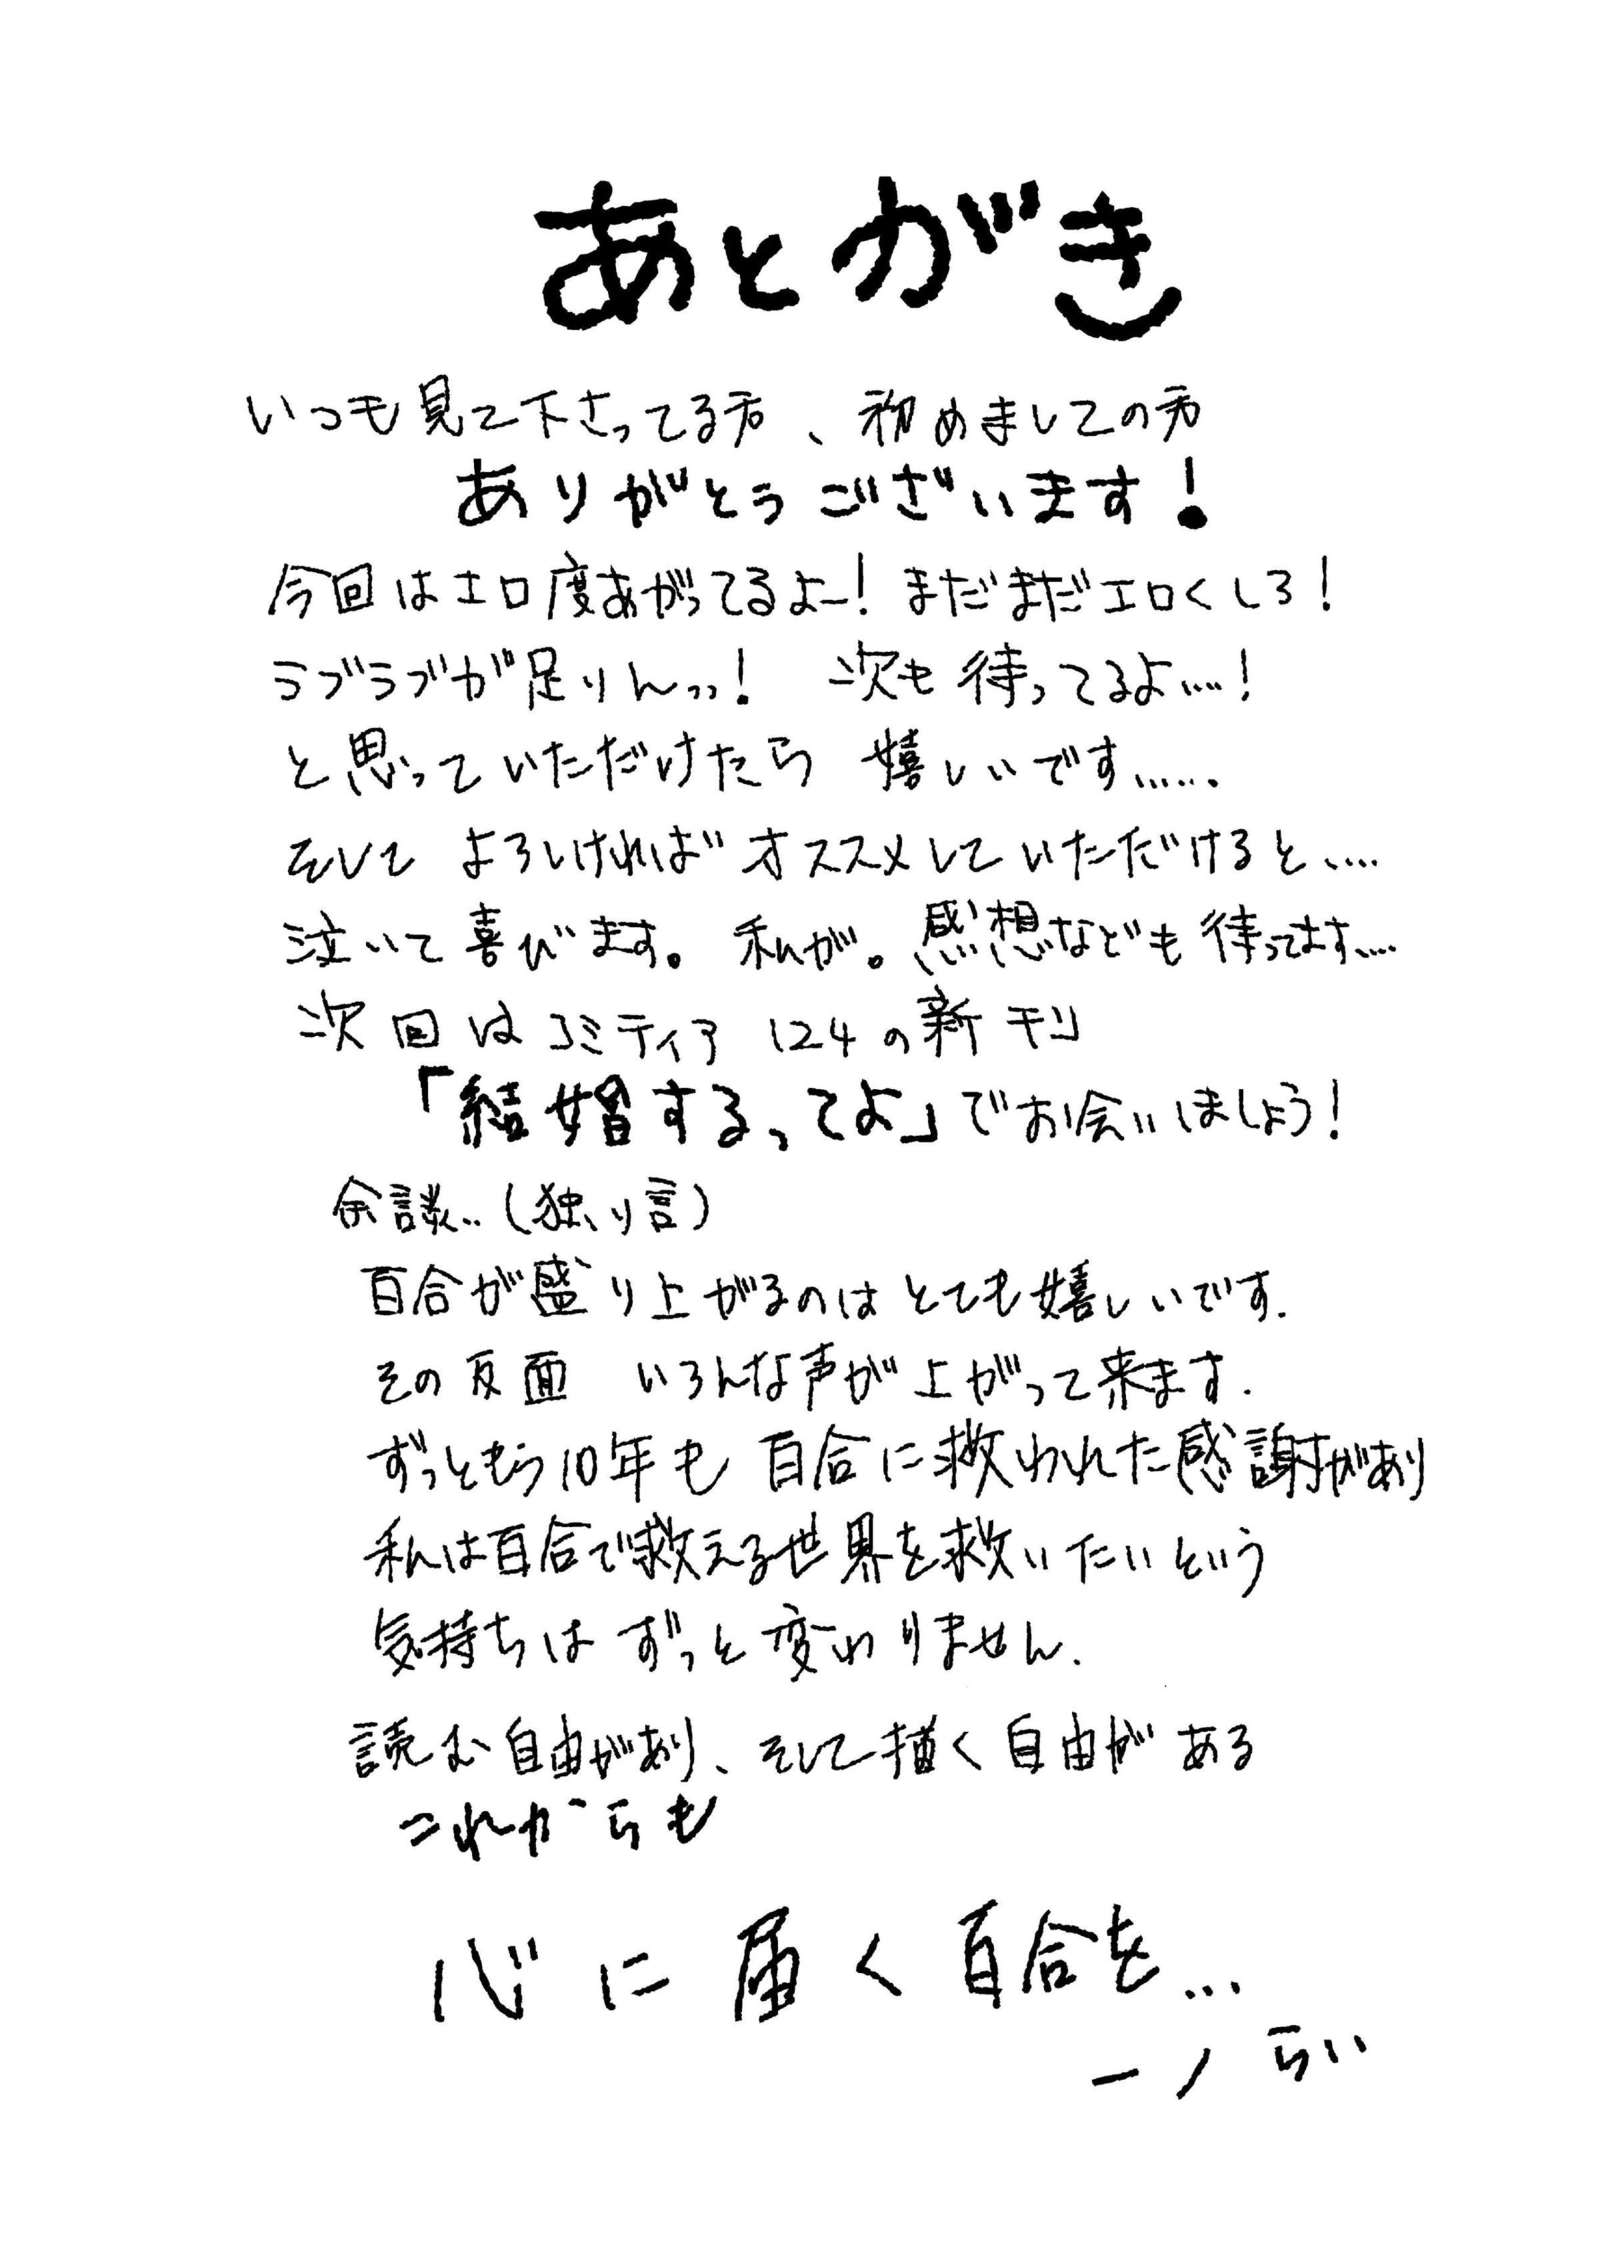 あとがき
いつも見て下さってる方、初めましての方
ありがとうございます!
今回はエロ度あがってるよー!まだまだエロくしろ!
ラブラブが足りんっっ! 次も待ってるよ……!
と思っていただけたら 嬉しいです……。
そして よろしければ オススメしていただけると……
泣いて喜びます。私が。感想なども待ってます……
次回はコミティア124の新刊
「結婚するってよ」でお会いしましょう!
余談..(独り言)
百合が盛り上がるのは とても嬉しいです.
その反面 いろんな声が上がって来ます.
ずっともう10年も 百合に救われた感謝があり
私は百合で救える世界を救いたいという
気持ちは ずっと変わりません.
読む自由があり、そして描く自由がある
これからも
心に届く百合を…
一ノらい